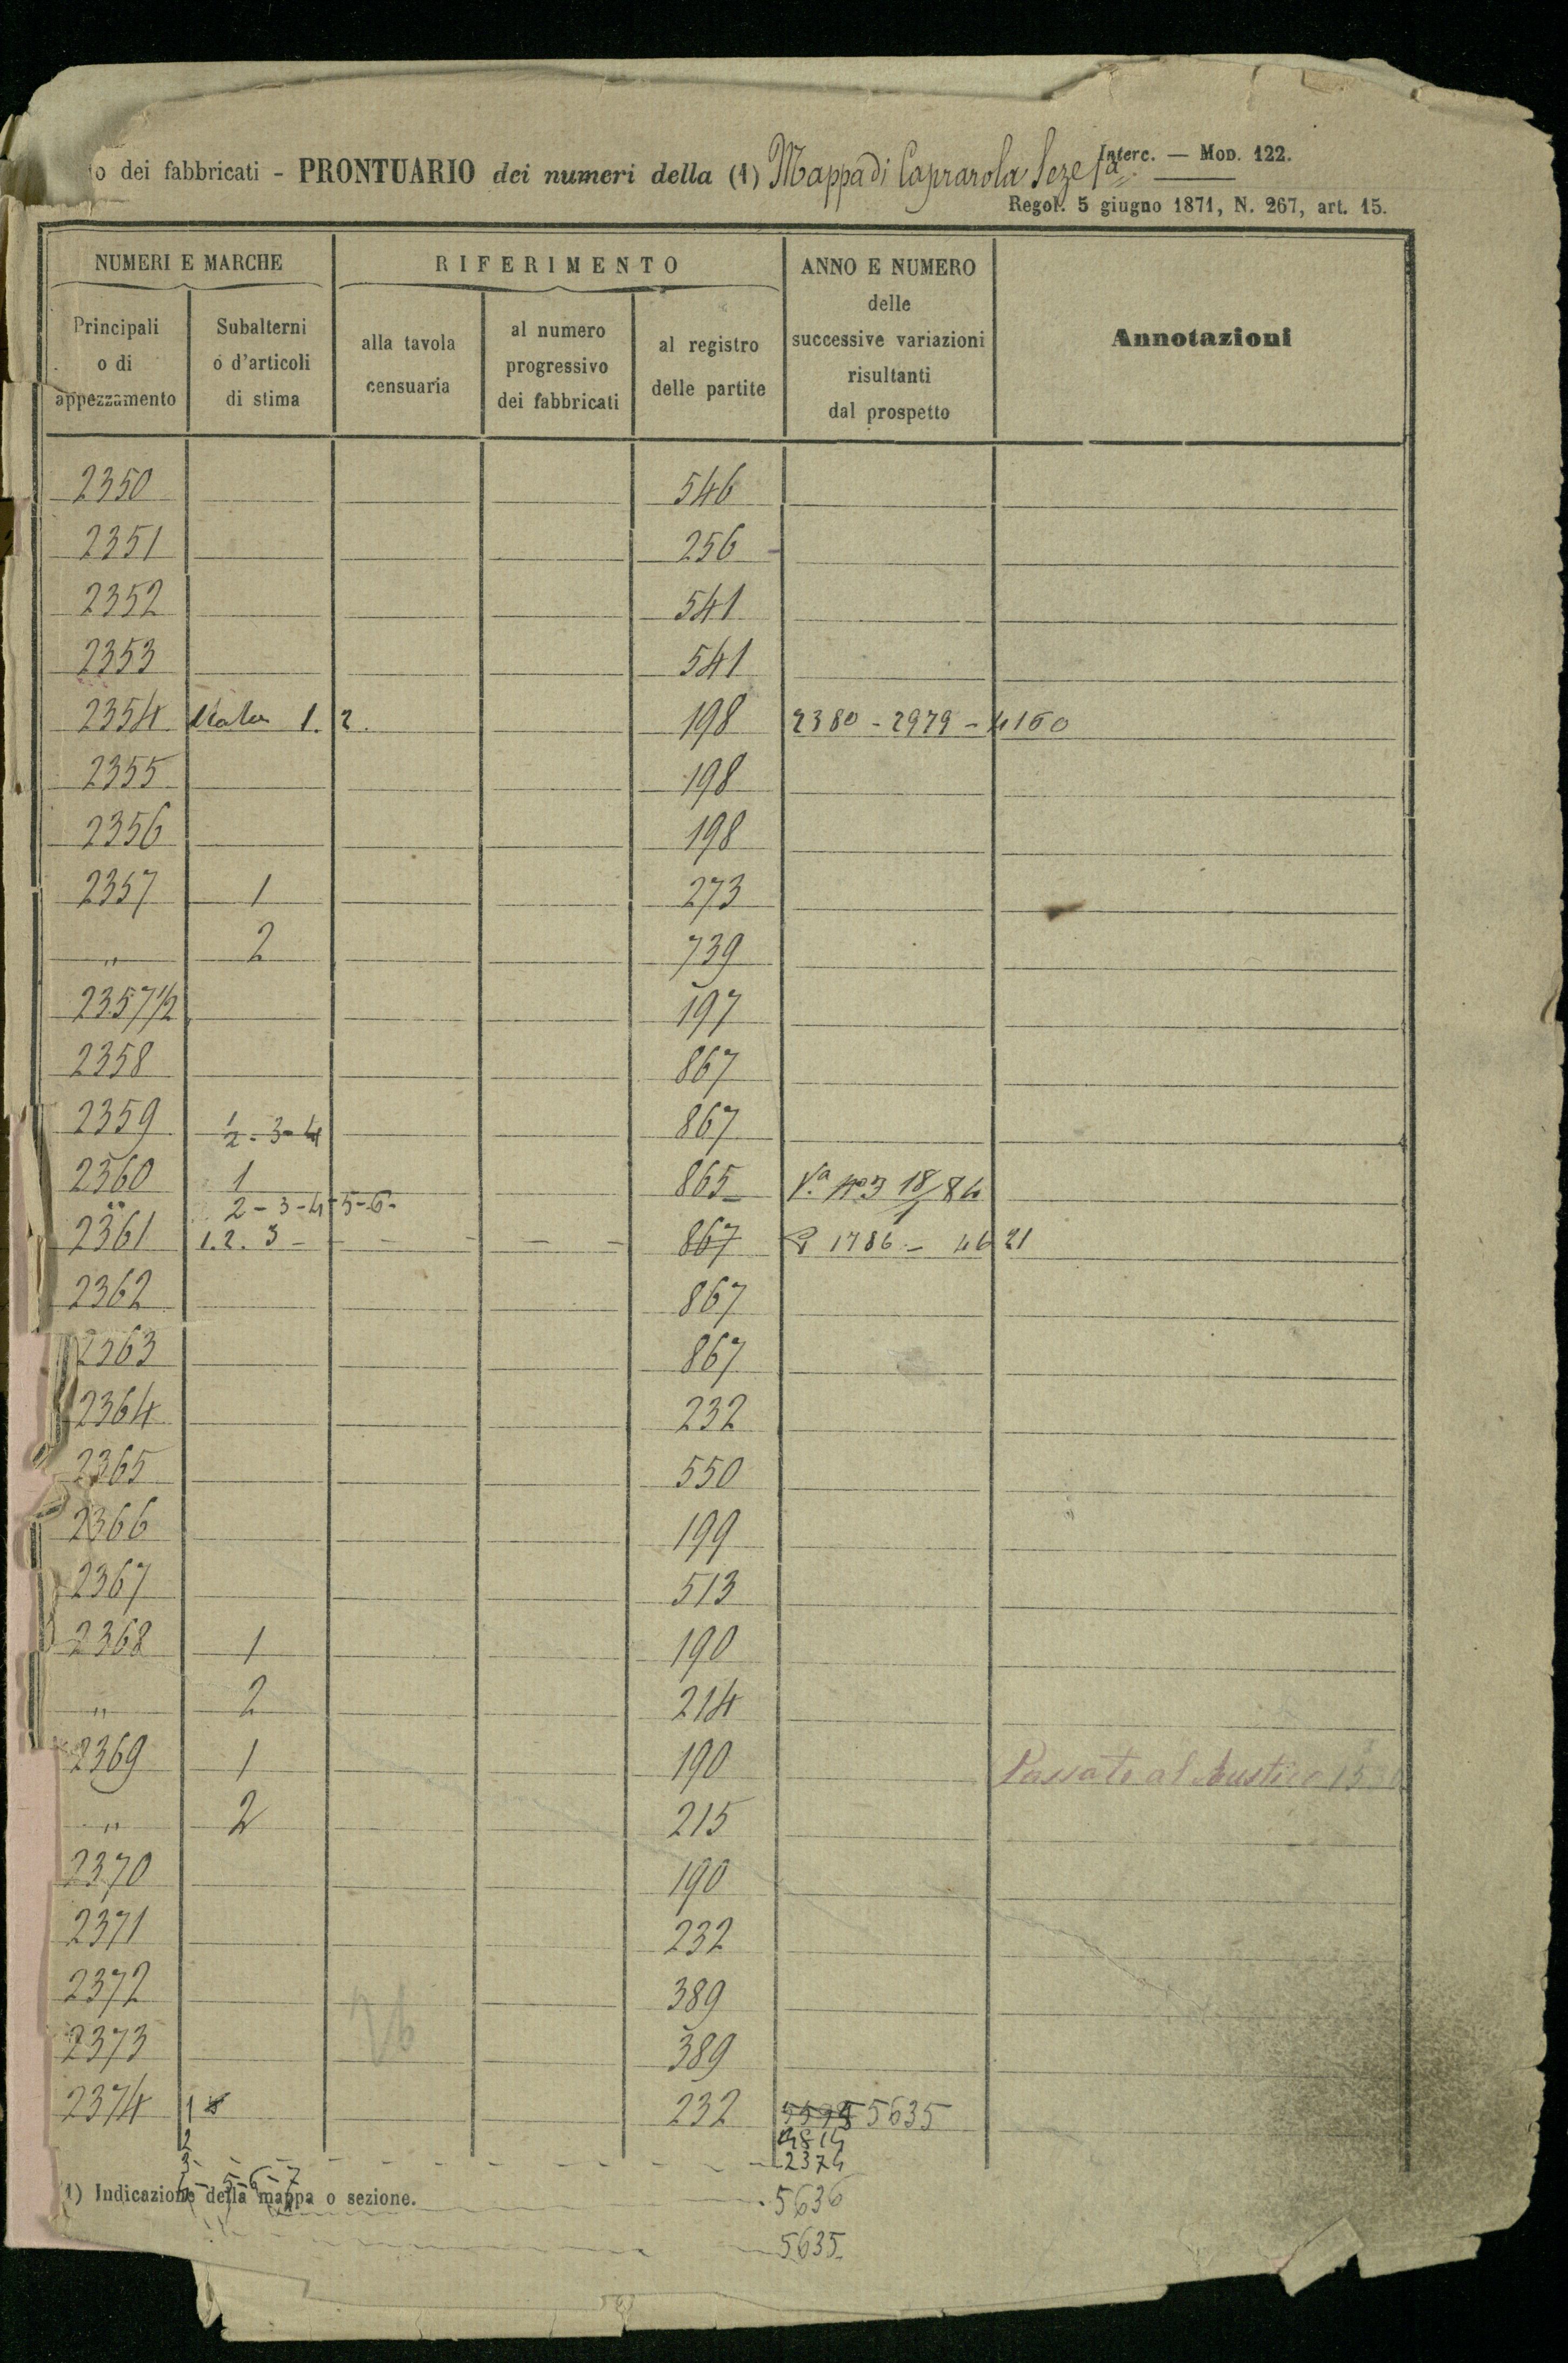 o dei fabbricati - PRONTUARIO dei numeri della (1) Mappa di Caprarola Seze
Interc. — MOD. 122.
Regol. 5 giugno 1871, N. 267, art. 15.
NUMERI E MARCHE
RIFERIMENTO
ANNO E NUMERO
delle
successive variazioni
risultanti
dal prospetto
Annotazioni
Principali
o di
appezzamento
Subalterni
o d'articoli
di stima
alla tavola
censuaria
al numero
progressivo
dei fabbricati
al registro
delle partite
2350 546
2351 256
2352 541
2353 541
2354 1. 2. 198 2380 - 2979 - 4160
2355 198
2356 198
2357 1 273
" 2 739
2357 1/2 197
2358 867
2359 1/2 - 3 - 4 867
2360 1 865 V.a 18/84
" 2 - 3 - 4 - 5 - 6 -
2361 1. 2. 3 - 867 1786 - 4621
2362 867
2363 867
2364 232
2365 550
2366 199
2367 513
2368 1 190
" 2 214
2369 1 190 Passato al Rustico
" 2 215
2370 190
2371 232
2372 389
2373 389
2374 1 232 5635
2 4814
3 - 2374
4 - 5 - 6 - 7
(1) Indicazione della mappa o sezione. 5636
5635